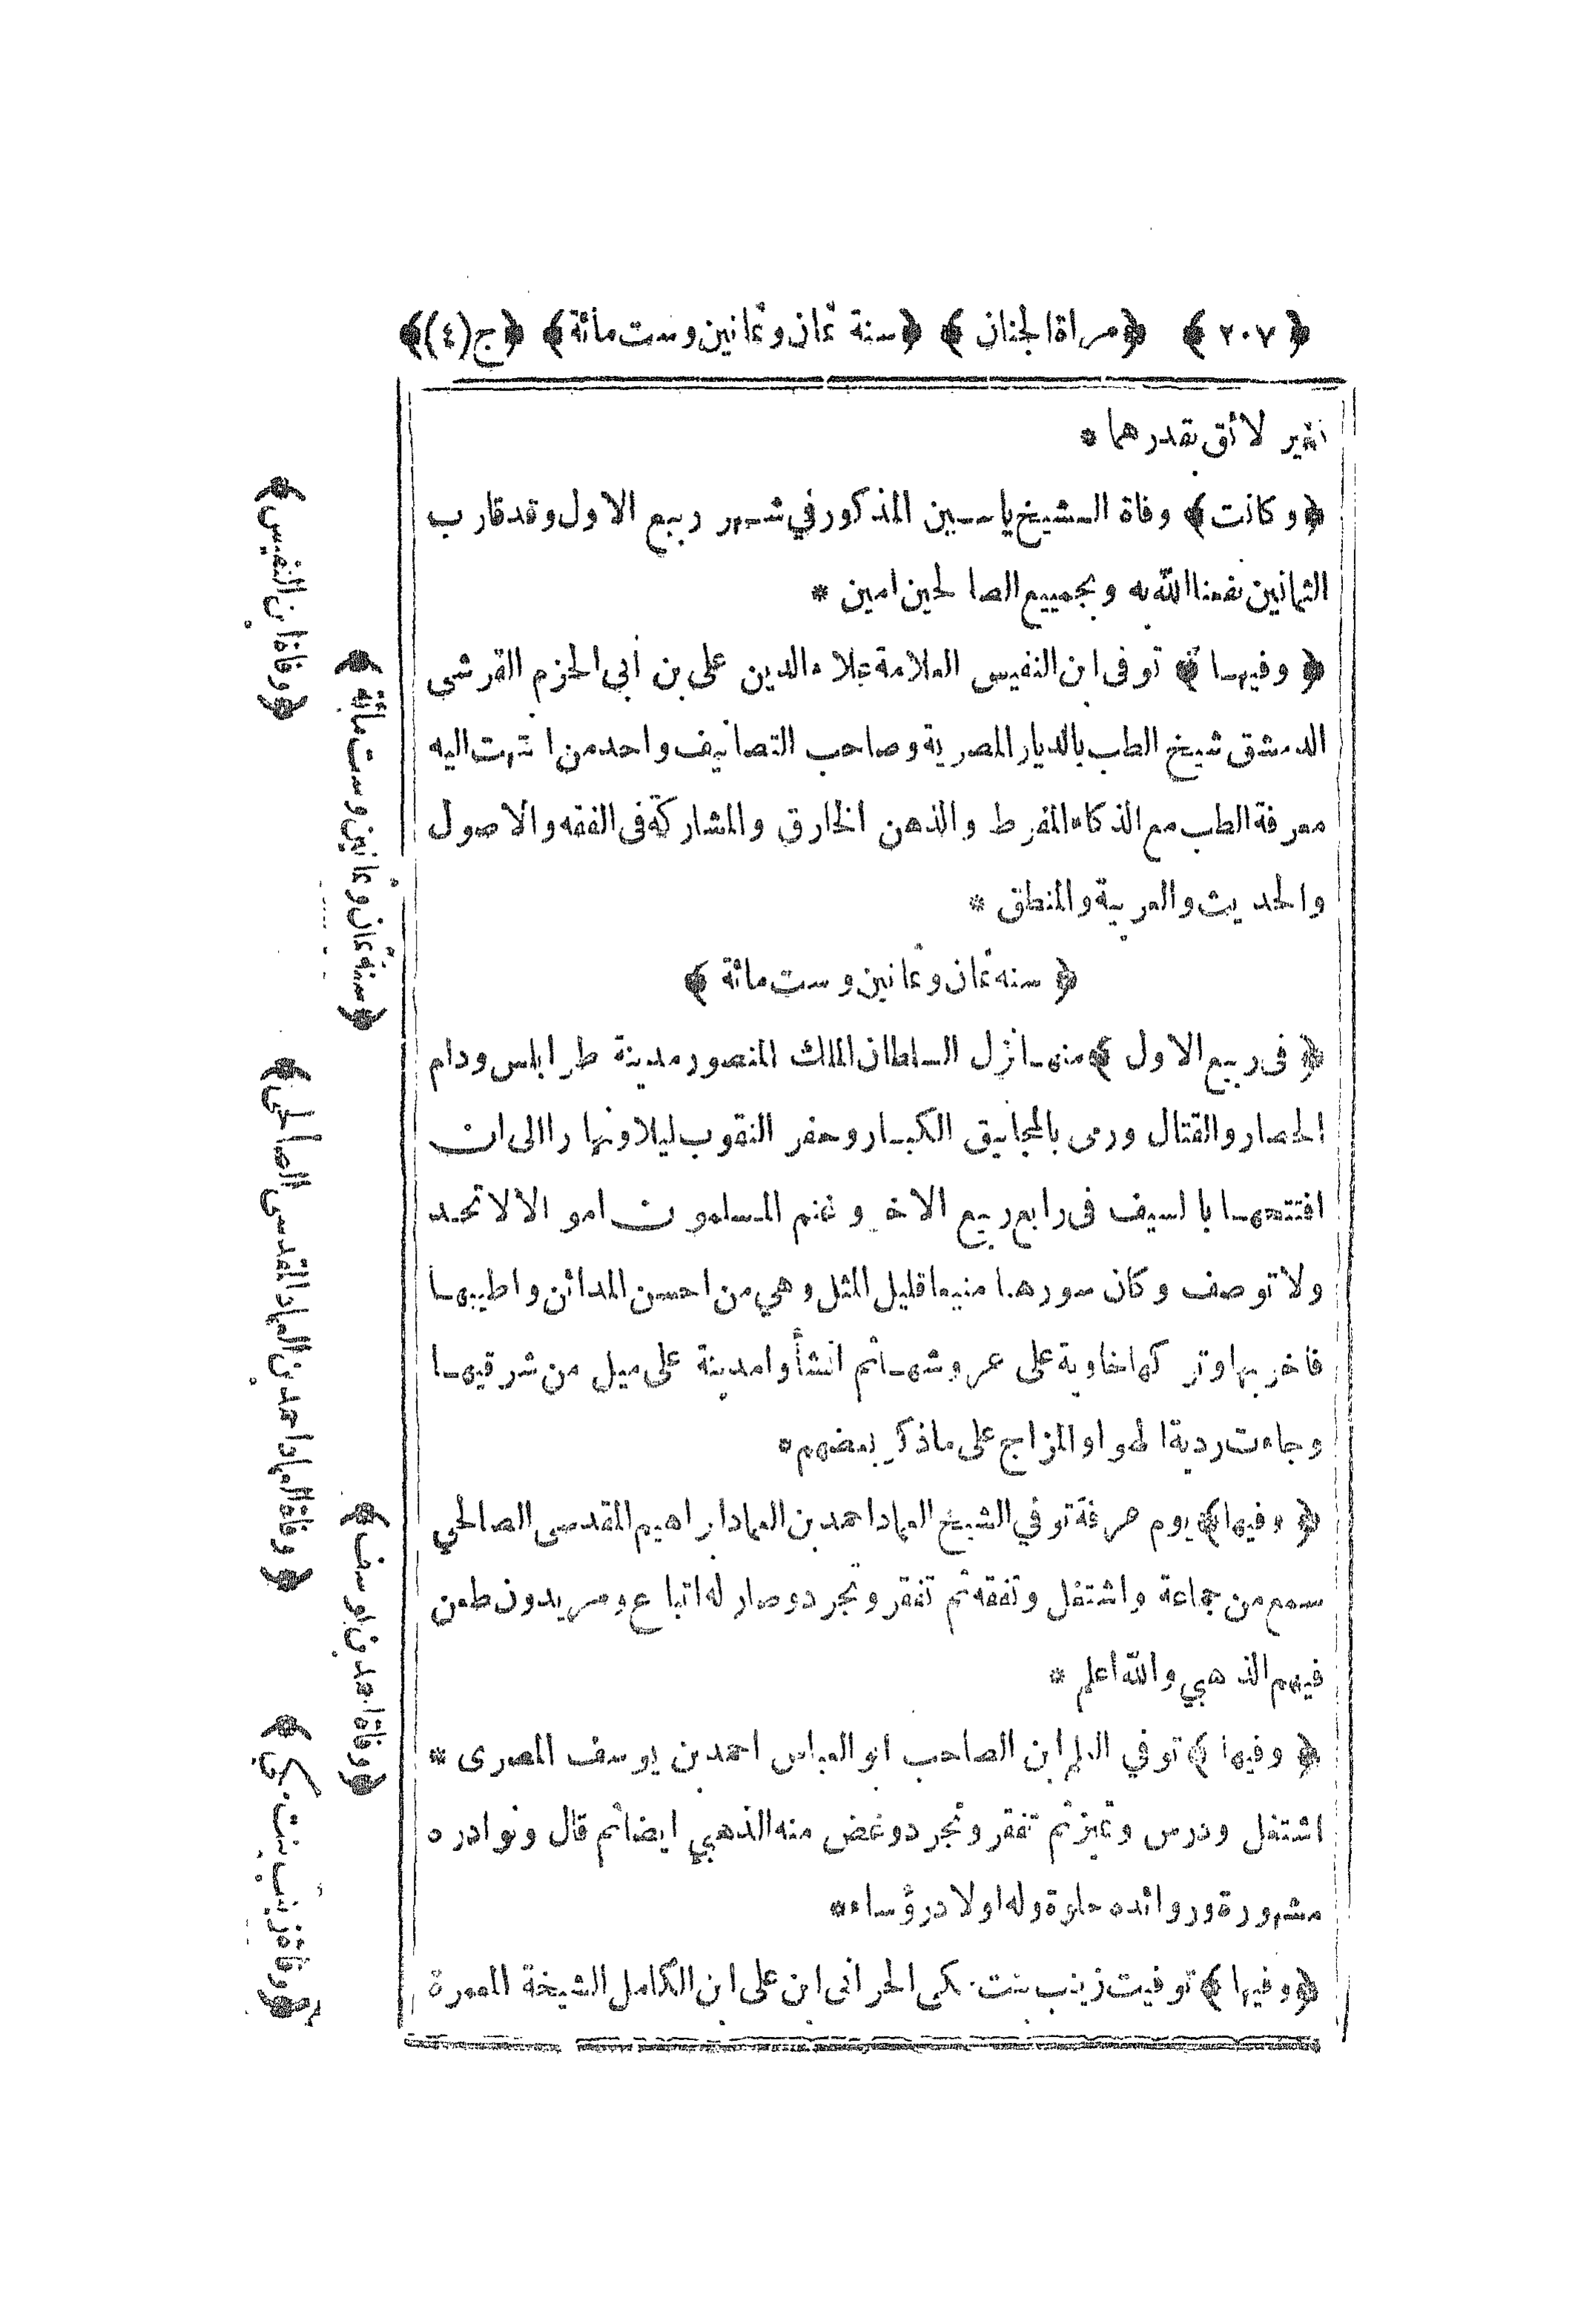 ﴿ ٢٠٧ ﴾ ﴿ مراة الجنان ﴾ ﴿ سنة ثمان وثمانين وست مائة ﴾ ﴿ ج (٤) ﴾
لائق بقدرهما *
﴿ وكانت ﴾ وفاة الشيخ ياسين المذكور في شهر ربيع الاول وقد قارب
الثمانين نفعنا الله به وبجميع الصالحين امين *
﴿ وفيها ﴾ توفى ابن النفيس العلامة علاء الدين على بن أبى الحزم القرشي
الدمشقى شيخ الطب بالديار المصرية وصاحب التصانيف واحد من انتهت اليه
معرفة الطب مع الذكاء المفرط والذهن الخارق والمشاركة فى الفقه والاصول
والحديث والعربية والمنطق *
﴿ سنه ثمان وثمانين وست مائة ﴾
﴿ فى ربيع الاول ﴾ منها نزل السلطان الملك المنصور مدينة طرابلس ودام
الحصار والقتال ورمى بالمجانيق الكبار وحفر النقوب ليلا ونهارا الى ان
افتتحها بالسيف فى رابع ربيع الاخر وغنم المسلمون اموالا لا تحد
ولا توصف وكان سورها منيعا قليل المثل وهي من احسن المدائن واطيبها
فاخربها وتركها خاوية على عروشها ثم انشأوا مدينة على ميل من شرقيها
وجاءت ردية الهوا والمزاج على ماذكر بعضهم *
﴿ وفيها ﴾ يوم عرفة توفي الشيخ العماد احمد بن العماد ابراهيم المقدسى الصالحي
سمع من جماعة واشتغل وتفقه ثم تفقر وتجرد وصار له اتباع ومريدون طعن
فيهم الذهبي والله اعلم *
﴿ وفيها ﴾ توفي العلم ابن الصاحب ابو العباس احمد بن يوسف المصرى *
اشتغل ودرس وتميز ثم تفقر وتجرد وغض منه الذهبي ايضا ثم قال ونوادره
مشهورة وروائده حلوة وله اولاد رؤساء *
﴿ وفيها ﴾ توفيت زينب بنت مكى الحرانى ابن على ابن الكامل الشيخة المعمرة
﴿ وفاة ابن النفيس ﴾
﴿ سنة ثمان وثمانين وست مائة ﴾
﴿ وفاة العماد احمد بن العماد المقدسى الصالحى ﴾
﴿ وفاة احمد بن يوسف ﴾
﴿ وفاة زينب بنت مكي ﴾